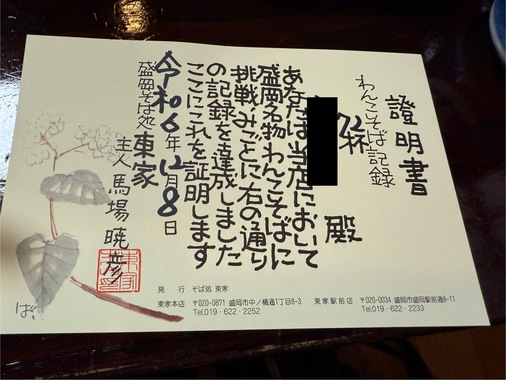 證明書
わんこそば記録
72杯
殿
あなたは当店において
盛岡名物わんこそばに
挑戦みごとに右の通り
の記録を達成しました
ここにこれを証明します
令和6年12月8日
盛岡そば処 東家
主人 馬場暁彦
ばば
発 行 そば処 東家
東家本店 〒020-0871 盛岡市中ノ橋通1丁目8-3
Tel.019・622・2252
東家駅前店 〒020-0034 盛岡市盛岡駅前通8-11
Tel.019・622・2233